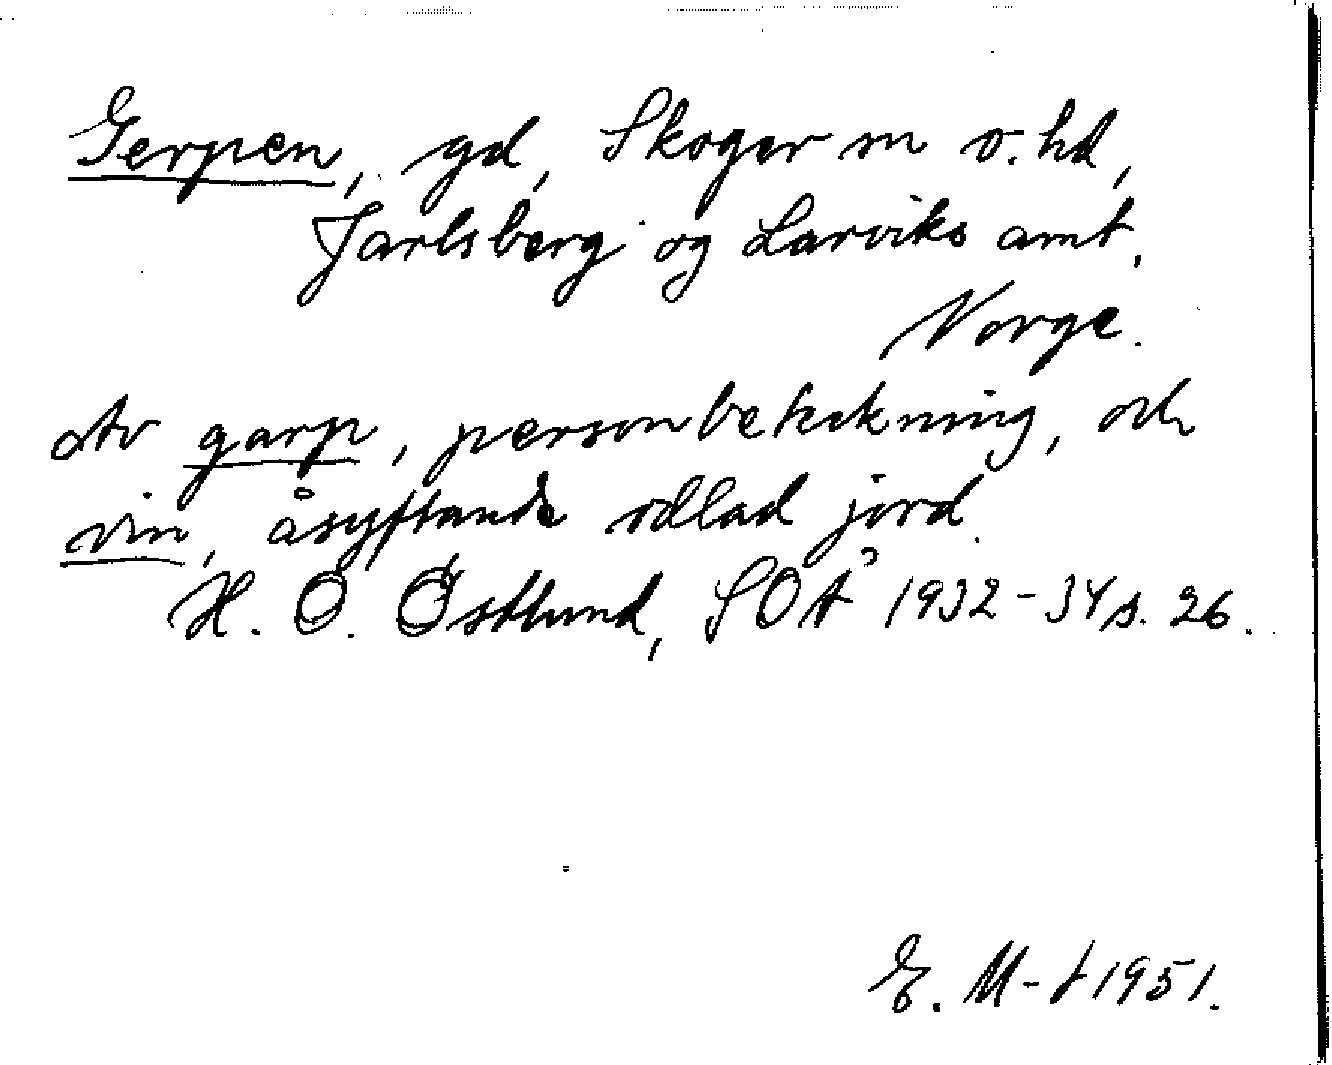 Gerpen, gd, Skoger sn o. hd,
Jarlsberg og Larviks amt.
Norge.
Av garp, personbeteckning, och
vin, åsyftande odlad jord.
H. Ö. Östlund, SOÅ 1932-34 s. 26.
E. M-t 1951.